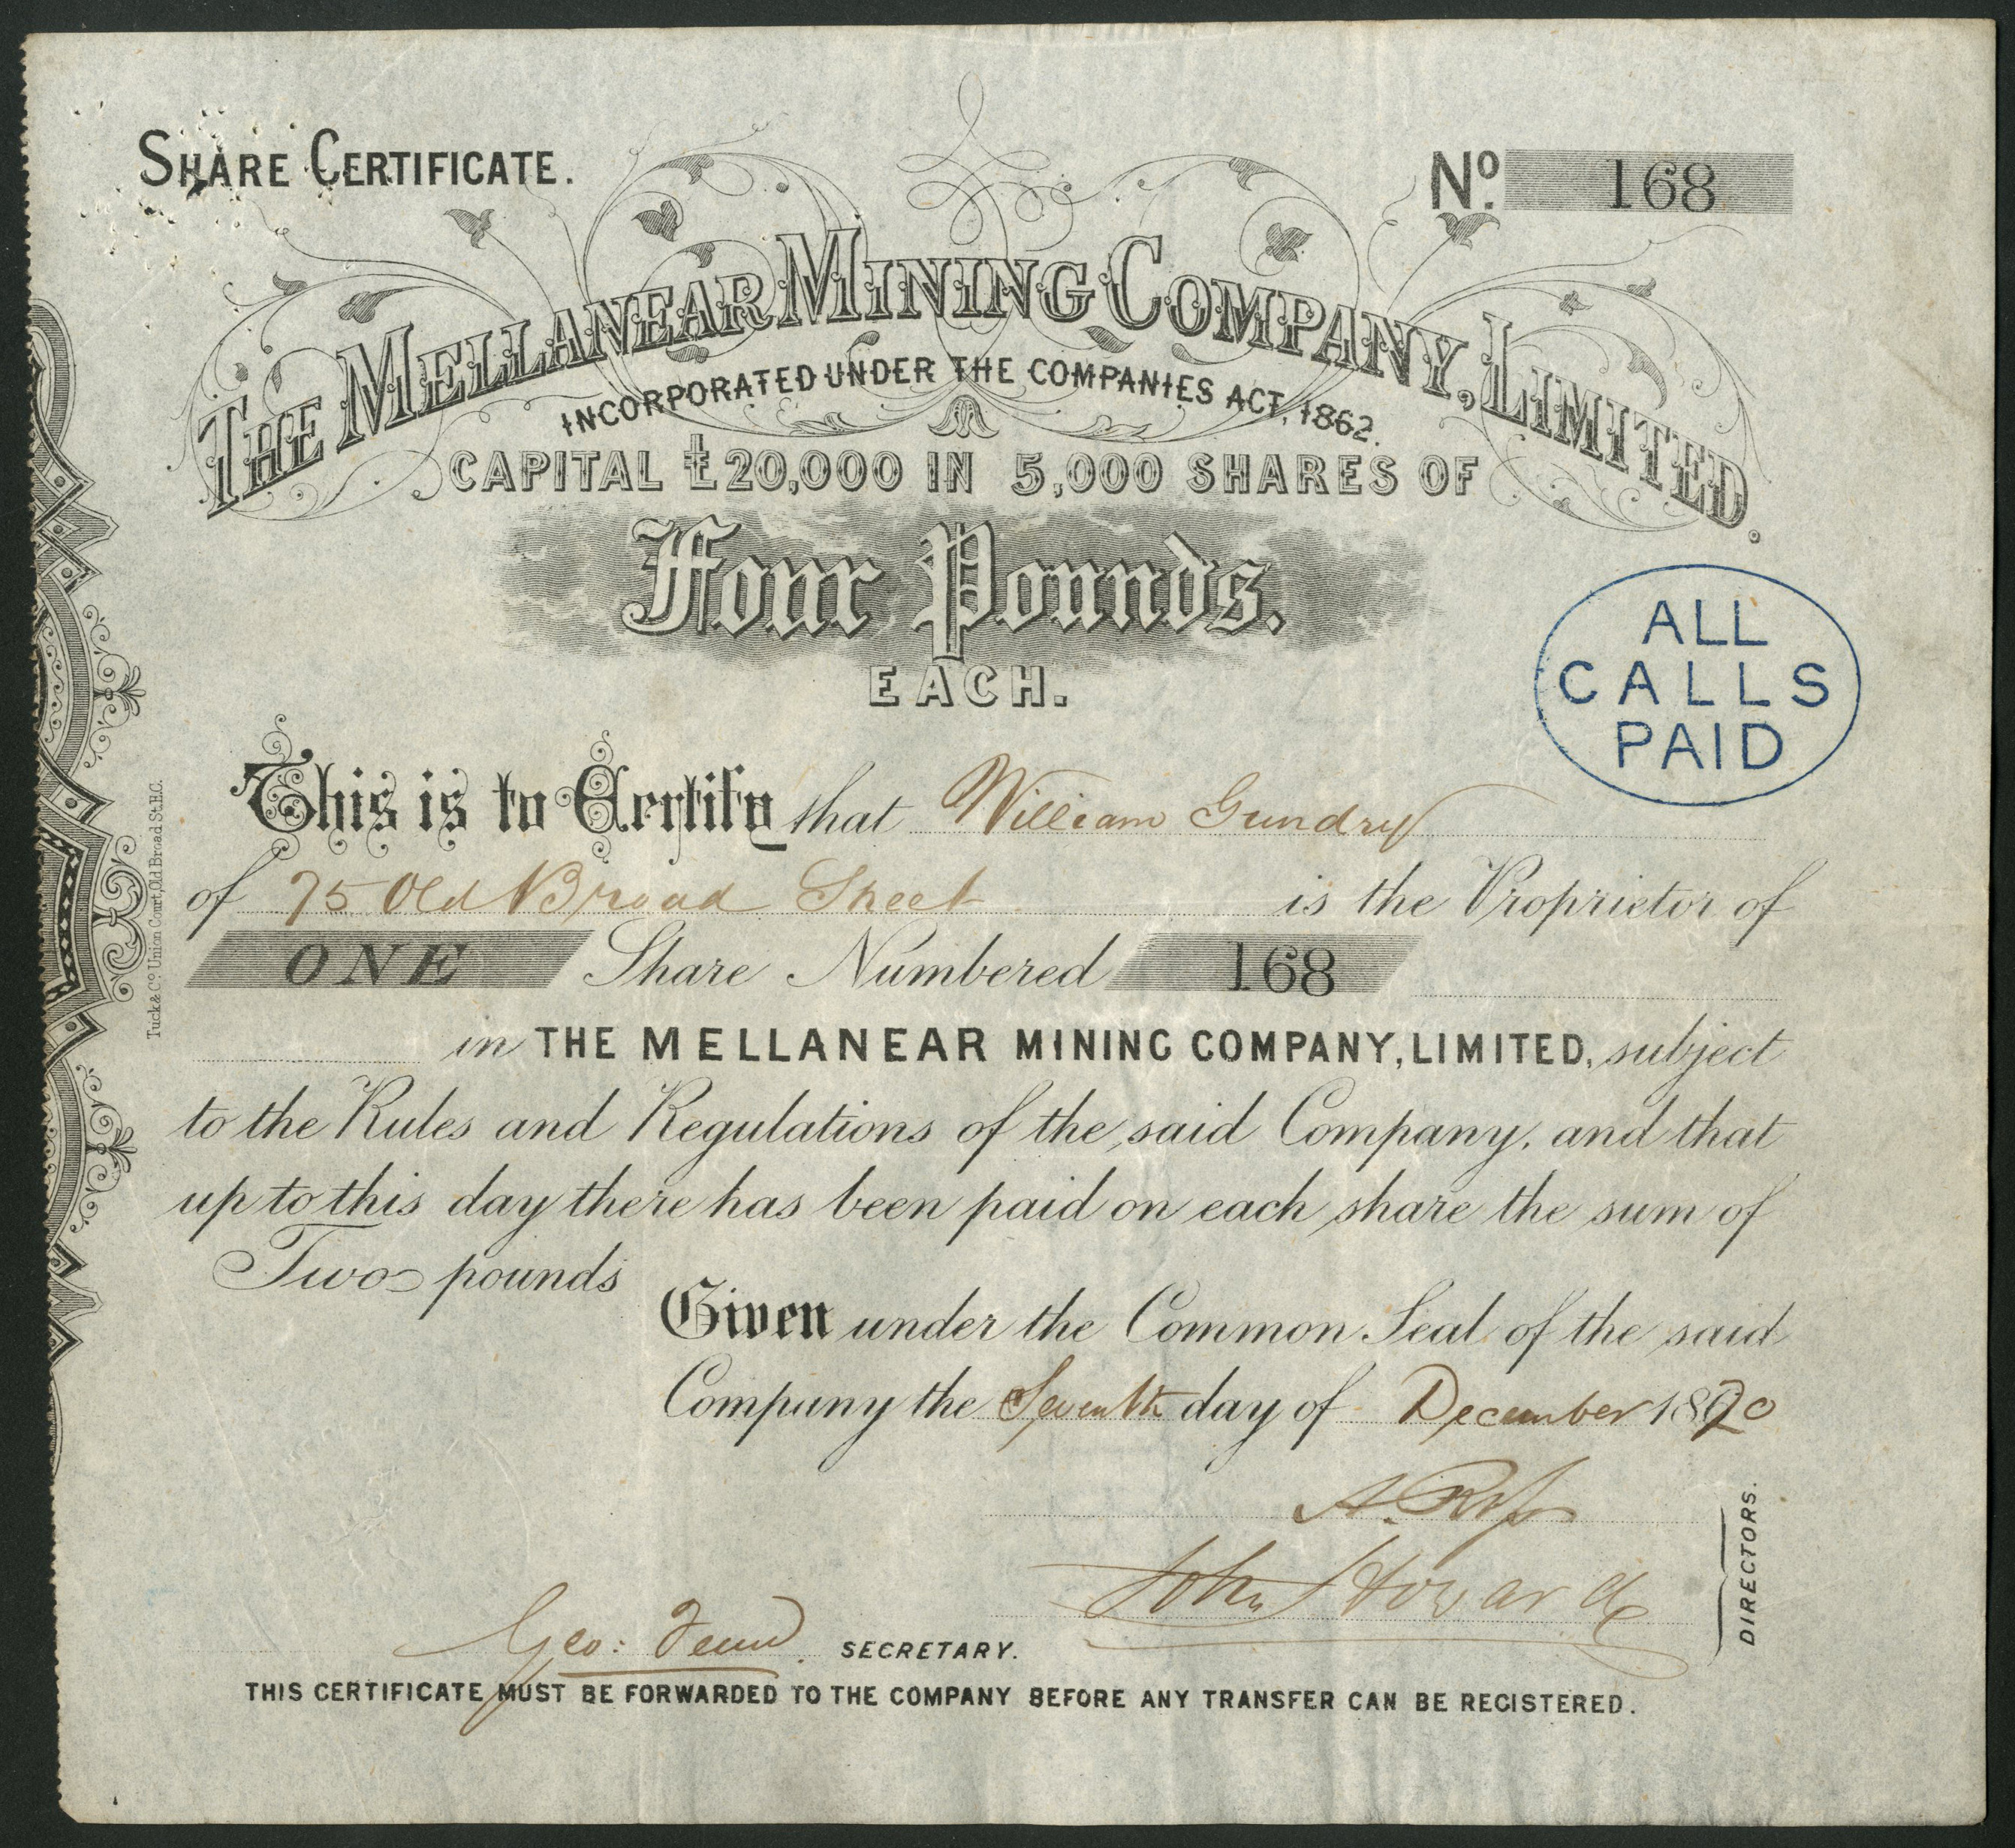 SHARE CERTIFICATE.
No. 168
THE MELLANEAR MINING COMPANY, LIMITED.
INCORPORATED UNDER THE COMPANIES ACT, 1862.
CAPITAL £20,000 IN 5,000 SHARES OF
Four Pounds.
EACH.
ALL
CALLS
PAID
This is to Certify that William Gundry
of 75 Old Broad Street is the Proprietor of
ONE Share Numbered 168
in THE MELLANEAR MINING COMPANY, LIMITED, subject
to the Rules and Regulations of the said Company, and that
up to this day there has been paid on each share the sum of
Two pounds
Given under the Common Seal of the said
Company the Seventh day of December 1870
A. Ross
John Howard
DIRECTORS.
Geo: SECRETARY.
THIS CERTIFICATE MUST BE FORWARDED TO THE COMPANY BEFORE ANY TRANSFER CAN BE REGISTERED.
Tuck & Co. Union Court, Old Broad St. E.C.